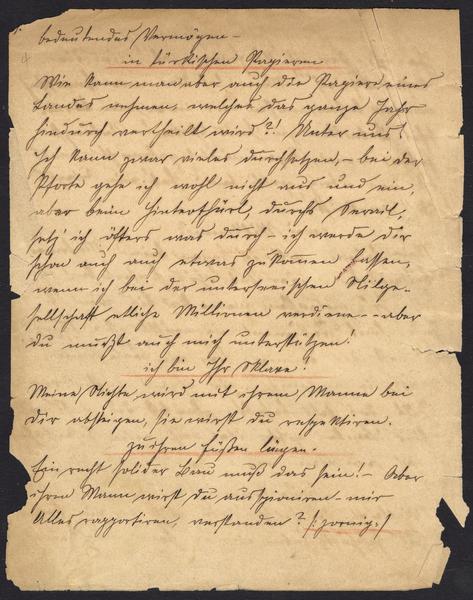 bedeutendes Vermögen –
in türkischen Papieren
Wie kann man aber auch die Papiere eines
Landes nehmen, welches das ganze Jahr
hindurch vertheilt wird?! Unter uns!
ich kann zwar vieles durchsetzen, – bei der
Pforte gehe ich wohl nicht aus und ein,
aber beim Hinterthürl, durchs Serail,
setz' ich öfters was durch – ich werde dir
schon auch auch etwas zukommen lassen,
wenn ich bei der unterseeischen Nilge-
sellschaft etliche Millionen verdiene – aber
du mußt auch mich unterstützen!
ich bin Ihr Sklave!
Meine Nichte wird mit ihrem Manne bei
dir absteigen, sie wirst du respektiren.
zu ihren Füßen liegen.
Ein recht solider Bau muß das sein! – Aber
ihren Mann wirst du ausspioniren – mir
Alles rapportiren, verstanden? /: zornig :/